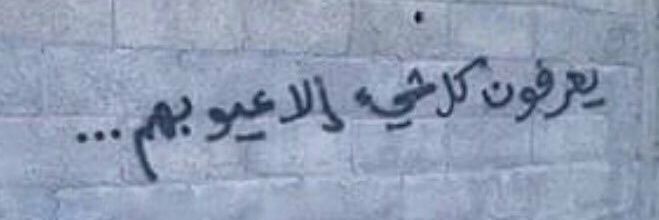 يعرفون كل شيء إلا عيوبهم...